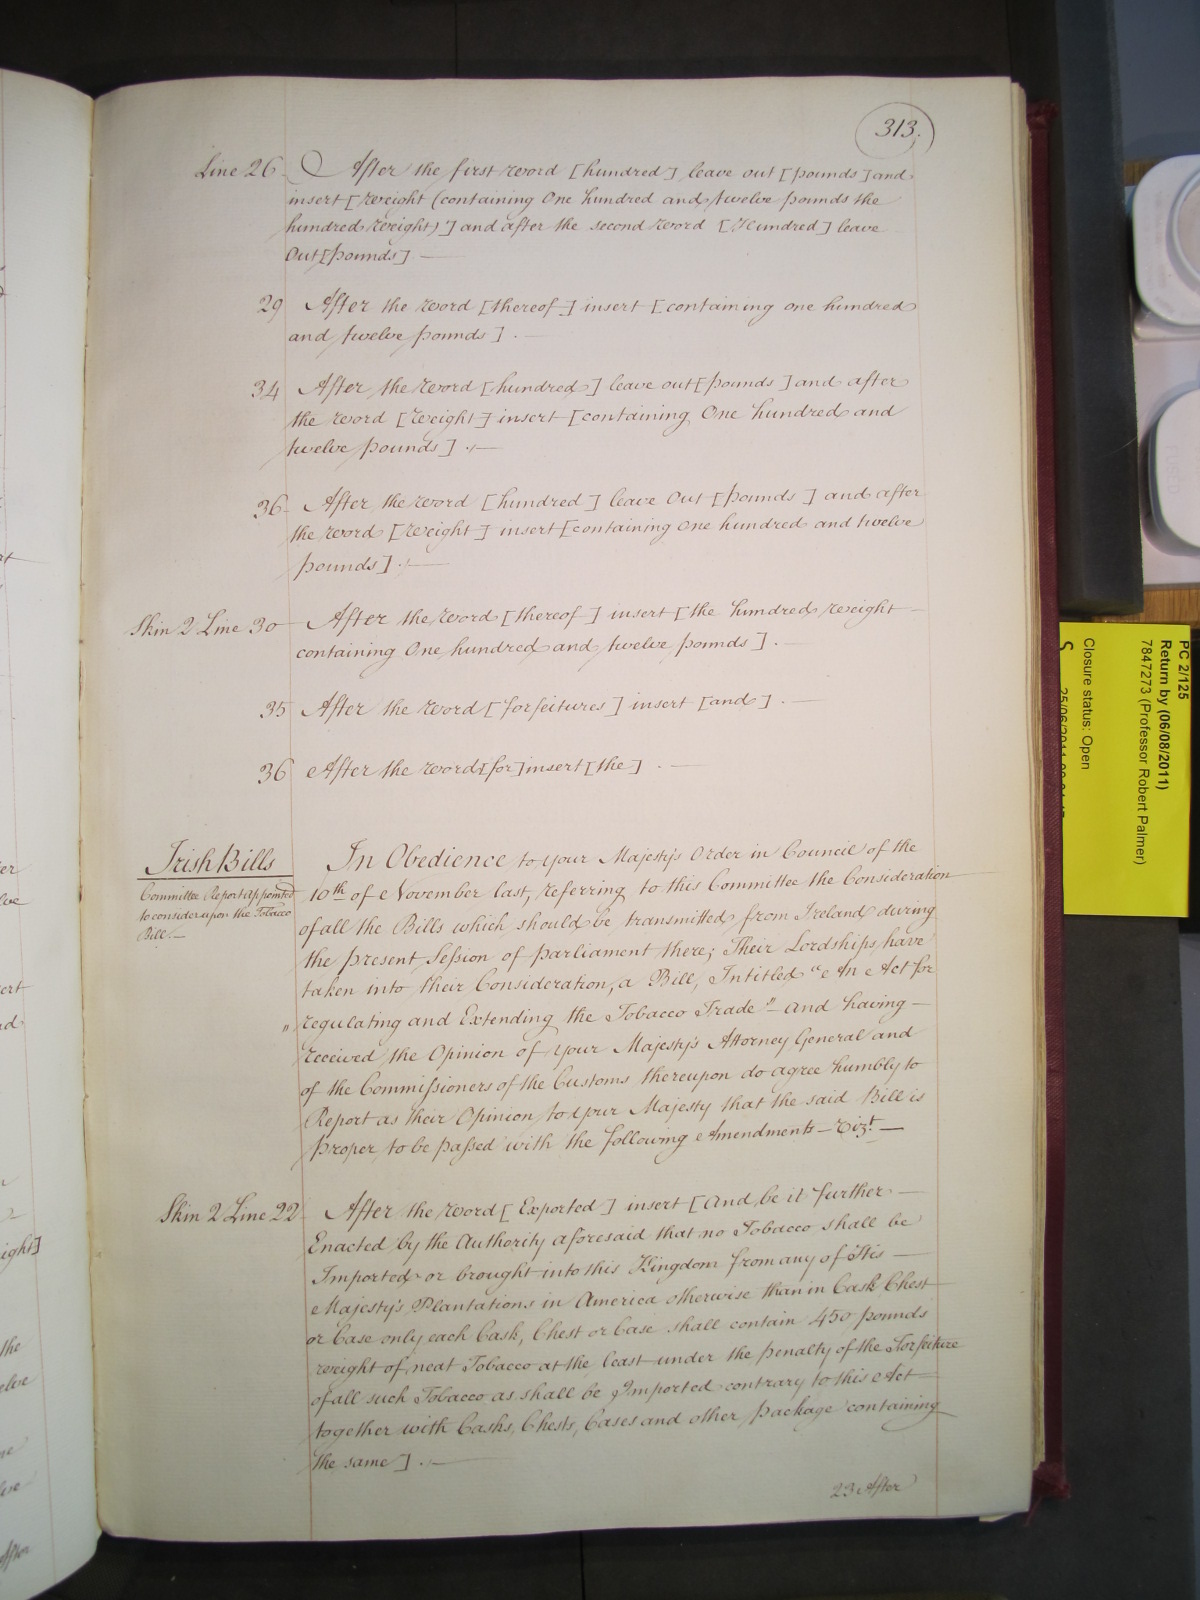 313.
Line 26. After the first word [hundred] leave out [pounds] and
insert [weight (containing One hundred and twelve pounds the
hundred weight)] and after the second word [Hundred] leave
Out [pounds]
29 After the word [thereof] insert [containing one hundred
and twelve pounds].
34 After the word [hundred] leave out [pounds] and after
the word [weight] insert [containing One hundred and
twelve pounds].
36 After the word [hundred] leave Out [pounds] and after
the word [weight] insert [containing One hundred and twelve
pounds].
Skin 2 Line 30 After the word [thereof] insert [the hundred weight
containing One hundred and twelve pounds].
35 After the word [forfeitures] insert [and].
36 After the word [for] insert [the].
Irish Bills
Committee Report appointed
to consider upon the Tobacco
Bill.
In Obedience to your Majesty's Order in Council of the
10th of November last, referring to this Committee the Consideration
of all the Bills which should be transmitted from Ireland during
the present Session of parliament there; Their Lordships have
taken into their Consideration, a Bill, Intitled "An Act for
" regulating and Extending the Tobacco Trade" And having
received the Opinion of your Majesty's Attorney General and
of the Commissioners of the Customs thereupon do agree humbly to
Report as their Opinion to your Majesty that the said Bill is
proper to be passed with the following Amendments – Vizt.
Skin 2 Line 22 After the word [Exported] insert [And be it further
Enacted by the Authority aforesaid that no Tobacco shall be
Imported or brought into this Kingdom from any of His
Majesty's Plantations in America otherwise than in Cask Chest
or Case only each Cask, Chest or Case shall contain 450 pounds
weight of neat Tobacco at the least under the penalty of the Forfeiture
of all such Tobacco as shall be Imported contrary to this Act
together with Casks, Chests, Cases and other package containing
the same].
23 After
PC 2/125
Return by (06/08/2011)
7847273 (Professor Robert Palmer)
Closure status: Open